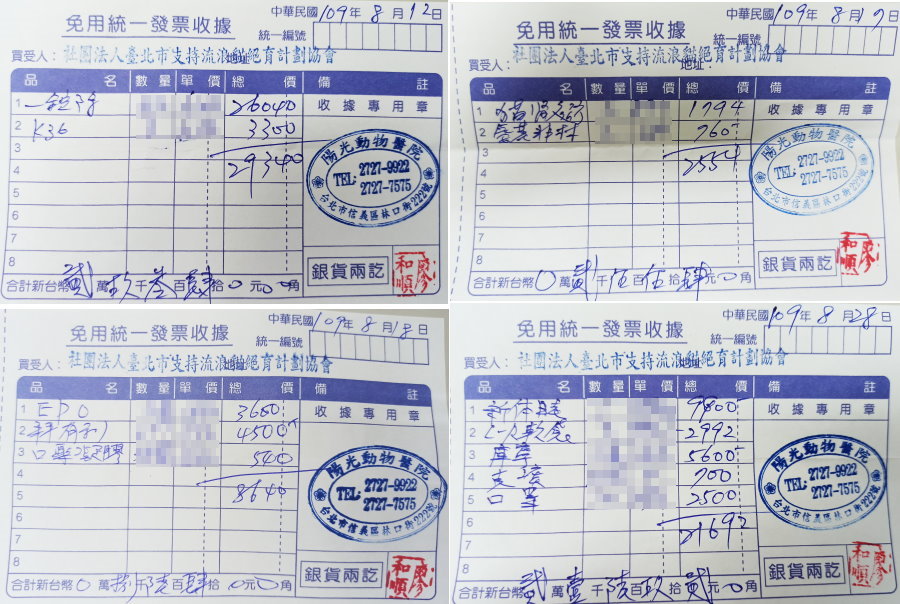 免用統一發票收據
中華民國109年8月12日
統一編號
買受人：社團法人臺北市支持流浪貓絕育計劃協會
地址：
品名 數量 單價 總價 備註
收據專用章
1 26040
2 K36 3300
3
4 29340
5
6
7
8
陽光動物醫院
TEL: 2727-9922
2727-7575
台北市信義區林口街222號
銀貨兩訖
廖和順
合計新台幣貳萬玖千參百肆拾0元0角
免用統一發票收據
中華民國109年8月17日
統一編號
買受人：社團法人臺北市支持流浪貓絕育計劃協會
地址：
品名 數量 單價 總價 備註
收據專用章
1 1794
2 760
3 2554
4
5
6
7
8
陽光動物醫院
TEL: 2727-9922
2727-7575
台北市信義區林口街222號
銀貨兩訖
廖和順
合計新台幣0萬貳千伍百伍拾肆元0角
免用統一發票收據
中華民國109年8月18日
統一編號
買受人：社團法人臺北市支持流浪貓絕育計劃協會
地址：
品名 數量 單價 總價 備註
收據專用章
1 EPO 3600
2 4500
3 口聖凝膠 540
4
5 8640
6
7
8
陽光動物醫院
TEL: 2727-9922
2727-7575
台北市信義區林口街222號
銀貨兩訖
廖和順
合計新台幣0萬捌千陸百肆拾0元0角
免用統一發票收據
中華民國109年8月28日
統一編號
買受人：社團法人臺北市支持流浪貓絕育計劃協會
地址：
品名 數量 單價 總價 備註
收據專用章
1 9800
2 2992
3 5600
4 700
5 口罩 2500
6
7 21692
8
陽光動物醫院
TEL: 2727-9922
2727-7575
台北市信義區林口街222號
銀貨兩訖
廖和順
合計新台幣貳萬壹千陸百玖拾貳元0角